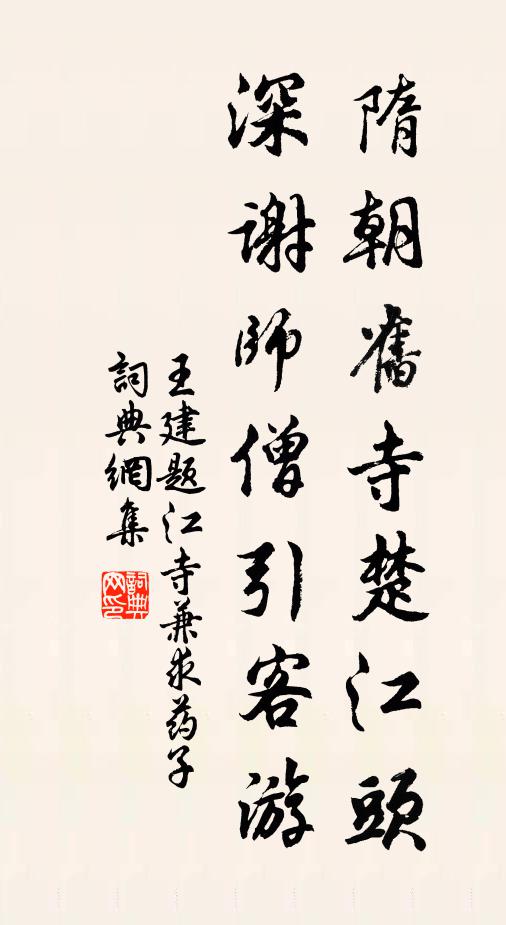 隋朝舊寺楚江頭
深谢師僧引客游
王建题江寺兼求药子
詞典網集
詞典网印